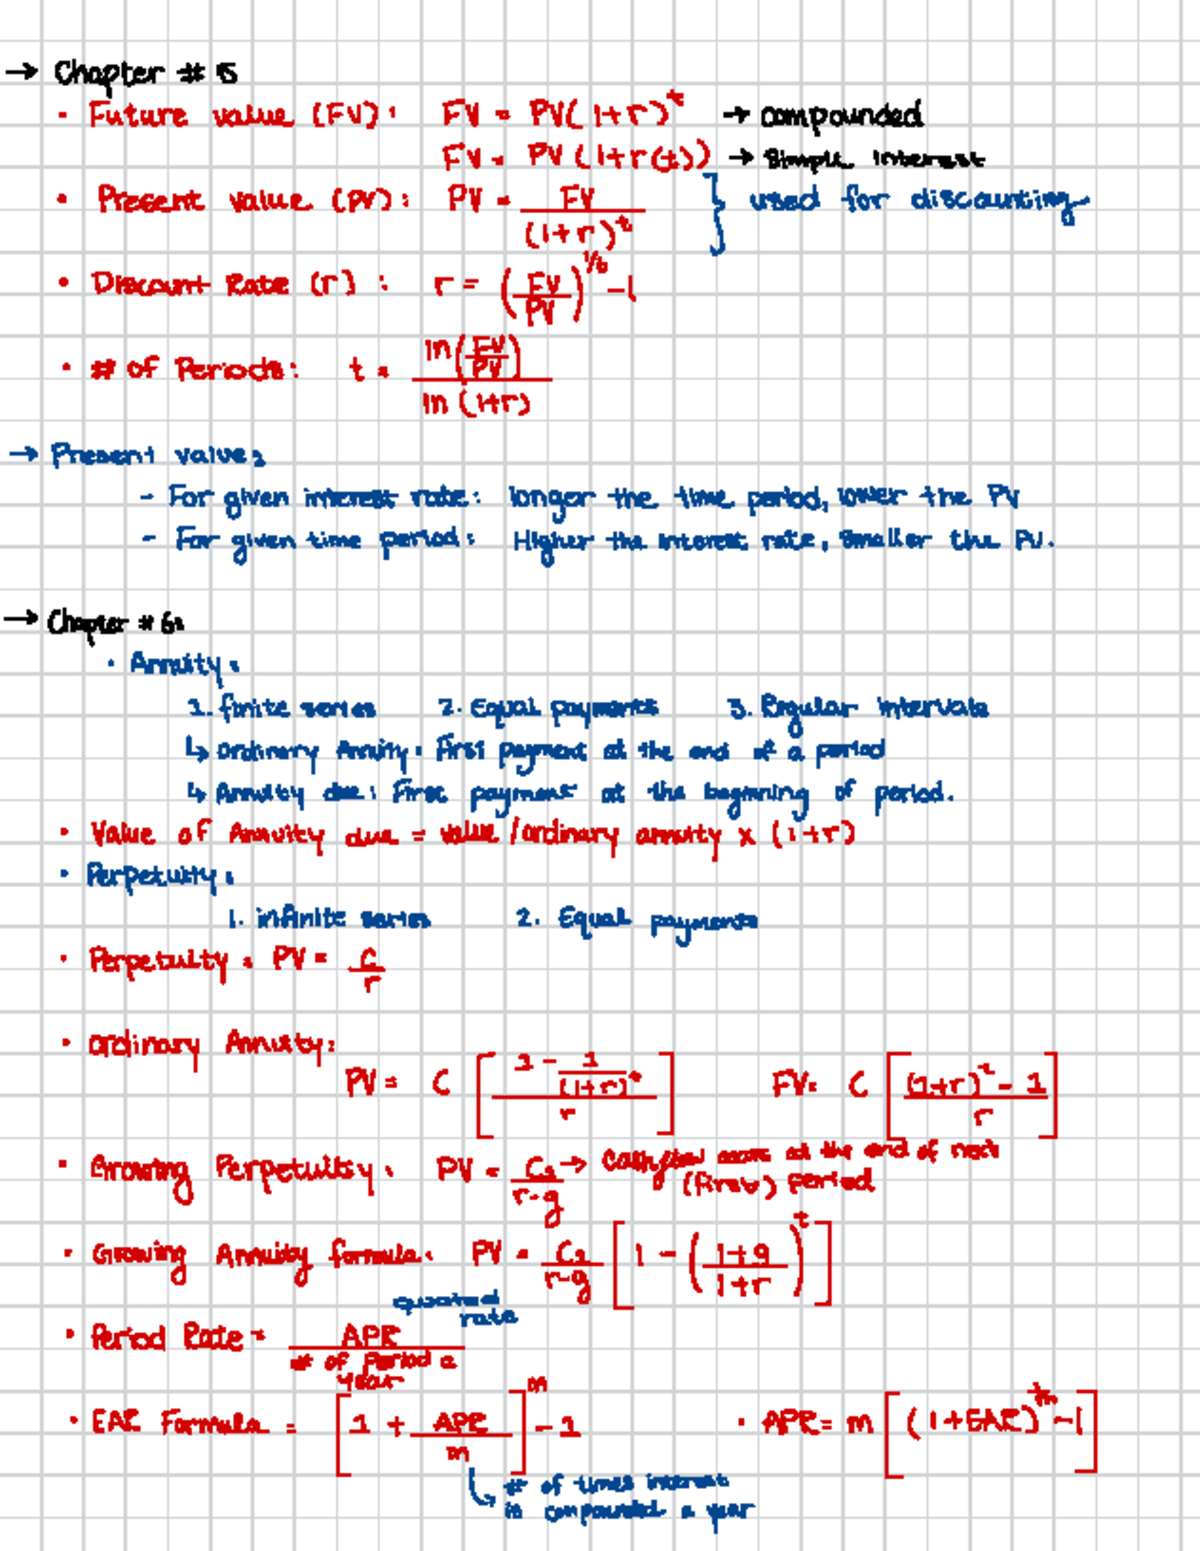 → Chapter # 5
• Future value (FV): FV = PV(1+r)^t → compounded
FV = PV (1+r(t)) → Simple interest
• Present value (PV): PV = FV / (1+r)^t } used for discounting
• Discount Rate (r) : r = (FV/PV)^1/t - 1
• # of Periods: t = ln(FV/PV) / ln (1+r)
→ Present value:
- For given interest rate: longer the time period, lower the PV
- For given time period: Higher the interest rate, smaller the PV.
→ Chapter # 6:
• Annuity:
1. finite series 2. Equal payments 3. Regular intervals
↳ ordinary Annuity: First payment at the end of a period
↳ Annuity due: First payment at the beginning of period.
• Value of Annuity due = value /ordinary annuity x (1+r)
• Perpetuity:
1. infinite series 2. Equal payments
• Perpetuity: PV = C/r
• ordinary Annuity:
PV = C [ (1 - 1/(1+r)^t) / r ] FV = C [ ((1+r)^t - 1) / r ]
• Growing Perpetuity: PV = C1/(r-g) → Cashflow at the end of next
(first) period
• Growing Annuity formula: PV = C1/(r-g) [ 1 - ( (1+g)/(1+r) )^t ]
quoted
rate
• Period Rate = APR / # of Period a
year
• EAR Formula = [ 1 + APR/m ]^m - 1 • APR = m [ (1+EAR)^1/m - 1 ]
↳ # of times interest
is compounded a year